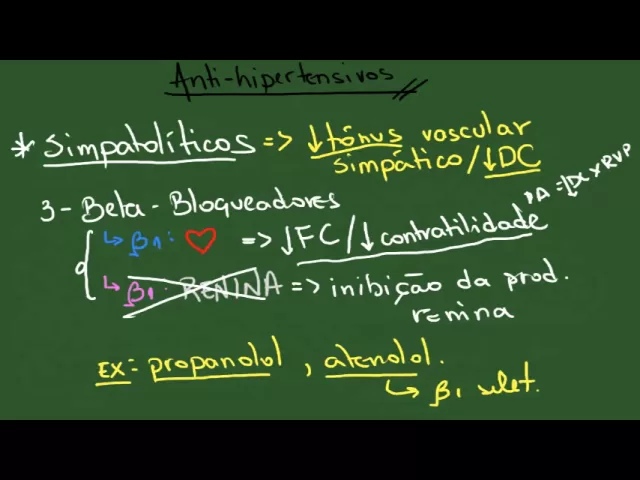 Anti-hipertensivos
* Simpatolíticos => ↓tônus vascular
simpático/↓DC
PA = ↓DC x RVP
3- Beta-Bloqueadores
↳ β1: ♡ => ↓FC/↓contratilidade
↳ β1: RENINA => inibição da prod.
renina
EX: propanolol, atenolol.
↳ β1 selet.